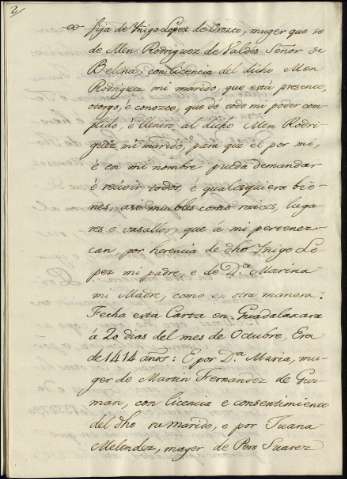 fija de Yñigo Lopez de Orozco, muger que so
de Men Rodriguez de Valdes Señor de
Beleña, con licencia del dicho Men
Rodriguez mi marido, que está presente,
otorgo, è conozco, que do todo mi poder com-
plido, è llenero al dicho Men Rodri-
guez mi marido, para que el por mi,
è en mi nombre pueda demandar
è recivir todos, è qualesquiera bie-
nes, asi muebles como raices, luga-
res e vasallos, que à mi pertenez-
can, por herencia de dho Yñigo Lo-
pez mi padre, e de D.ª Marina
mi Madre, como en otra manera:
Fecha esta Carta en Guadalaxara
à 20 dias del mes de Octubre, Era
de 1414 años: E por D.ª Maria, mu-
ger de Martin Fernandez de Guz-
man, con licencia e consentimiento
del dho su marido, e por Juana
Melendez, muger de Pero Suarez